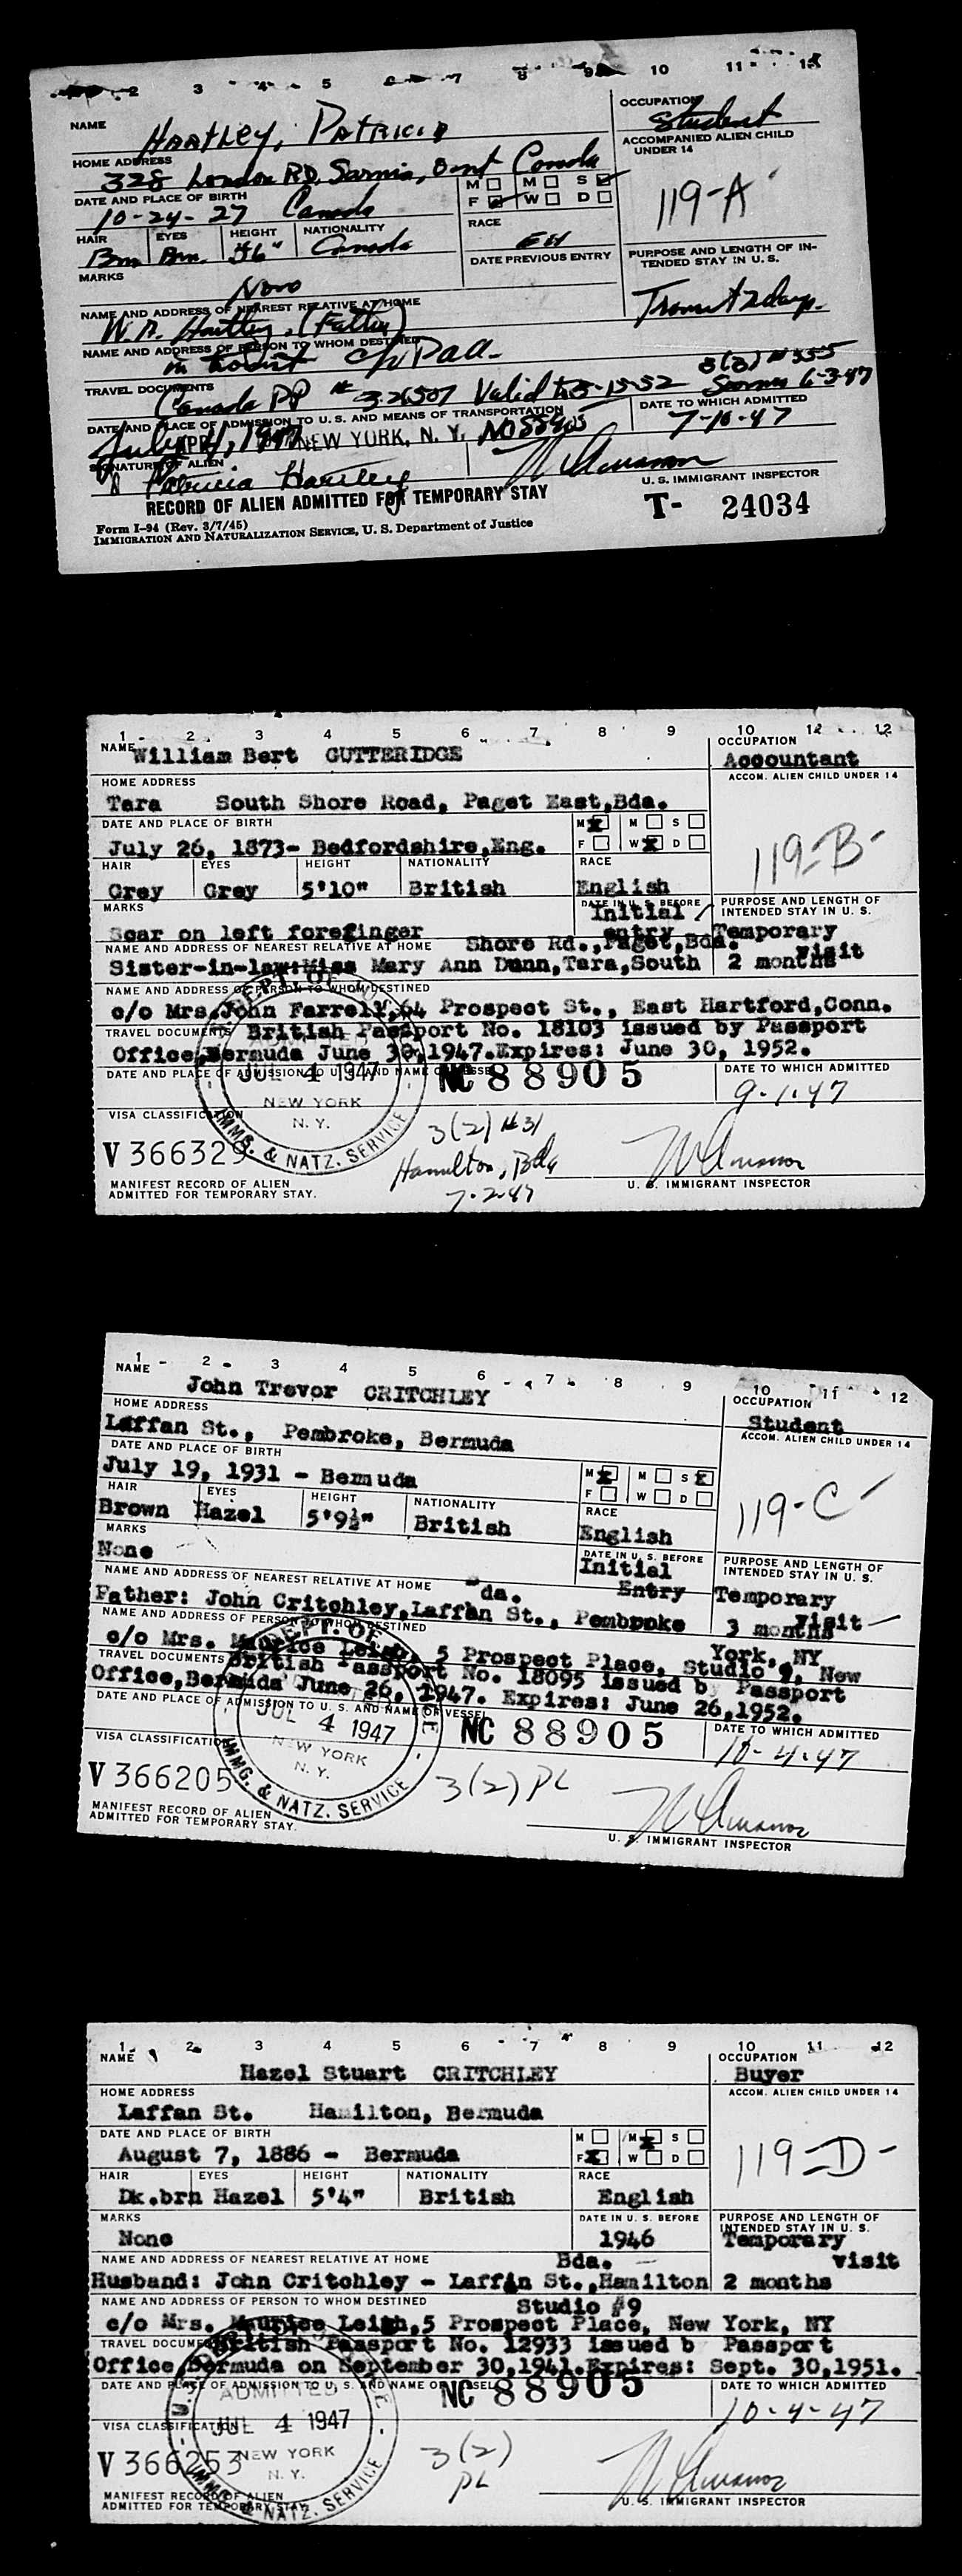 2 3 4 5 6 7 8 9 10 11 12
NAME
HARTLEY, PATRICIA
OCCUPATION
Student
HOME ADDRESS
328 London RD. Sarnia, Ont Canada
ACCOMPANIED ALIEN CHILD
UNDER 14
119-A
DATE AND PLACE OF BIRTH
10-24-27 Canada
M M S
F W D
HAIR EYES HEIGHT NATIONALITY
Brn Brn. Canada
RACE
DATE PREVIOUS ENTRY
PURPOSE AND LENGTH OF IN-
TENDED STAY IN U. S.
Transit 2 days.
MARKS
NAME AND ADDRESS OF NEAREST RELATIVE AT HOME
Hartley, (Father)
NAME AND ADDRESS OF PERSON TO WHOM DESTINED
in transit
TRAVEL DOCUMENTS
Canada PP # 3-26507 Valid to 3-15-52
3(3) #355
6-3-47
DATE AND PLACE OF ADMISSION TO U. S. AND MEANS OF TRANSPORTATION
July 4, 1947 NEW YORK, N. Y. NC88905
DATE TO WHICH ADMITTED
7-10-47
SIGNATURE OF ALIEN
Patricia Hartley
U. S. IMMIGRANT INSPECTOR
RECORD OF ALIEN ADMITTED FOR TEMPORARY STAY
T- 24034
Form I-94 (Rev. 3/7/45)
IMMIGRATION AND NATURALIZATION SERVICE, U. S. Department of Justice
1 2 3 4 5 6 7 8 9 10 11 12
NAME William Bert GUTTERIDGE
OCCUPATION
Accountant
HOME ADDRESS
ACCOM. ALIEN CHILD UNDER 14
Tara South Shore Road, Paget East,Bda.
119-B-
DATE AND PLACE OF BIRTH
M M S
F W D
July 26, 1873- Bedfordshire,Eng.
HAIR EYES HEIGHT NATIONALITY RACE
Grey Grey 5'10" British English
MARKS
DATE IN U. S. BEFORE
Initial
entry
PURPOSE AND LENGTH OF
INTENDED STAY IN U. S.
Temporary
visit
2 months
Scar on left forefinger
NAME AND ADDRESS OF NEAREST RELATIVE AT HOME Shore Rd.,Paget,Bda.
Sister-in-law:Miss Mary Ann Dunn,Tara,South
NAME AND ADDRESS OF PERSON TO WHOM DESTINED
c/o Mrs.John Farrell,64 Prospect St., East Hartford,Conn.
TRAVEL DOCUMENTS British Passport No. 18103 issued by Passport
Office,Bermuda June 30,1947.Expires: June 30, 1952.
DATE AND PLACE OF ADMISSION TO U. S. AND NAME OF VESSEL
NC 88905
DATE TO WHICH ADMITTED
9-1-47
JUL 4 1947
NEW YORK
N. Y.
IMMG. & NATZ. SERVICE
VISA CLASSIFICATION
V 366329
3(2) #31
Hamilton, Bda
7-2-47
MANIFEST RECORD OF ALIEN
ADMITTED FOR TEMPORARY STAY.
U. S. IMMIGRANT INSPECTOR
1 2 3 4 5 6 7 8 9 10 11 12
NAME
John Trevor CRITCHLEY
OCCUPATION
Student
HOME ADDRESS
ACCOM. ALIEN CHILD UNDER 14
Laffan St., Pembroke, Bermuda
119-C-
DATE AND PLACE OF BIRTH
M M S
F W D
July 19, 1931 - Bermuda
HAIR EYES HEIGHT NATIONALITY RACE
Brown Hazel 5'9½" British English
MARKS
None
DATE IN U. S. BEFORE
Initial
Entry
PURPOSE AND LENGTH OF
INTENDED STAY IN U. S.
Temporary
visit
3 months
NAME AND ADDRESS OF NEAREST RELATIVE AT HOME da.
Father: John Critchley,Laffan St., Pembroke
NAME AND ADDRESS OF PERSON TO WHOM DESTINED
York, NY
c/o Mrs. Maurice Leigh, 5 Prospect Place, Studio 9, New
TRAVEL DOCUMENTS British Passport No. 18095 issued b Passport
Office,Bermuda June 26, 1947. Expires: June 26,1952.
DATE AND PLACE OF ADMISSION TO U. S. AND NAME OF VESSEL
NC 88905
DATE TO WHICH ADMITTED
10-4-47
JUL 4 1947
NEW YORK
N. Y.
IMMG. & NATZ. SERVICE
VISA CLASSIFICATION
V 366205
3(2) PL
MANIFEST RECORD OF ALIEN
ADMITTED FOR TEMPORARY STAY.
U. S. IMMIGRANT INSPECTOR
1 2 3 4 5 6 7 8 9 10 11 12
NAME
Hazel Stuart CRITCHLEY
OCCUPATION
Buyer
HOME ADDRESS
ACCOM. ALIEN CHILD UNDER 14
Laffan St. Hamilton, Bermuda
119-D-
DATE AND PLACE OF BIRTH
M M S
F W D
August 7, 1886 - Bermuda
HAIR EYES HEIGHT NATIONALITY RACE
Dk.brn Hazel 5'4" British English
MARKS
None
DATE IN U. S. BEFORE
1946
PURPOSE AND LENGTH OF
INTENDED STAY IN U. S.
Temporary
visit
2 months
NAME AND ADDRESS OF NEAREST RELATIVE AT HOME Bda.
Husband: John Critchley - Laffan St.,Hamilton
NAME AND ADDRESS OF PERSON TO WHOM DESTINED Studio #9
c/o Mrs. Maurice Leigh,5 Prospect Place, New York, NY
TRAVEL DOCUMENTS British Passport No. 12933 issued b Passport
Office,Bermuda on September 30,1941.Expires: Sept. 30,1951.
DATE AND PLACE OF ADMISSION TO U. S. AND NAME OF VESSEL
NC 88905
DATE TO WHICH ADMITTED
10-4-47
ADMITTED
JUL 4 1947
NEW YORK
N. Y.
IMMG. & NATZ. SERVICE
VISA CLASSIFICATION
V 366253
3(2)
PL
MANIFEST RECORD OF ALIEN
ADMITTED FOR TEMPORARY STAY.
U. S. IMMIGRANT INSPECTOR